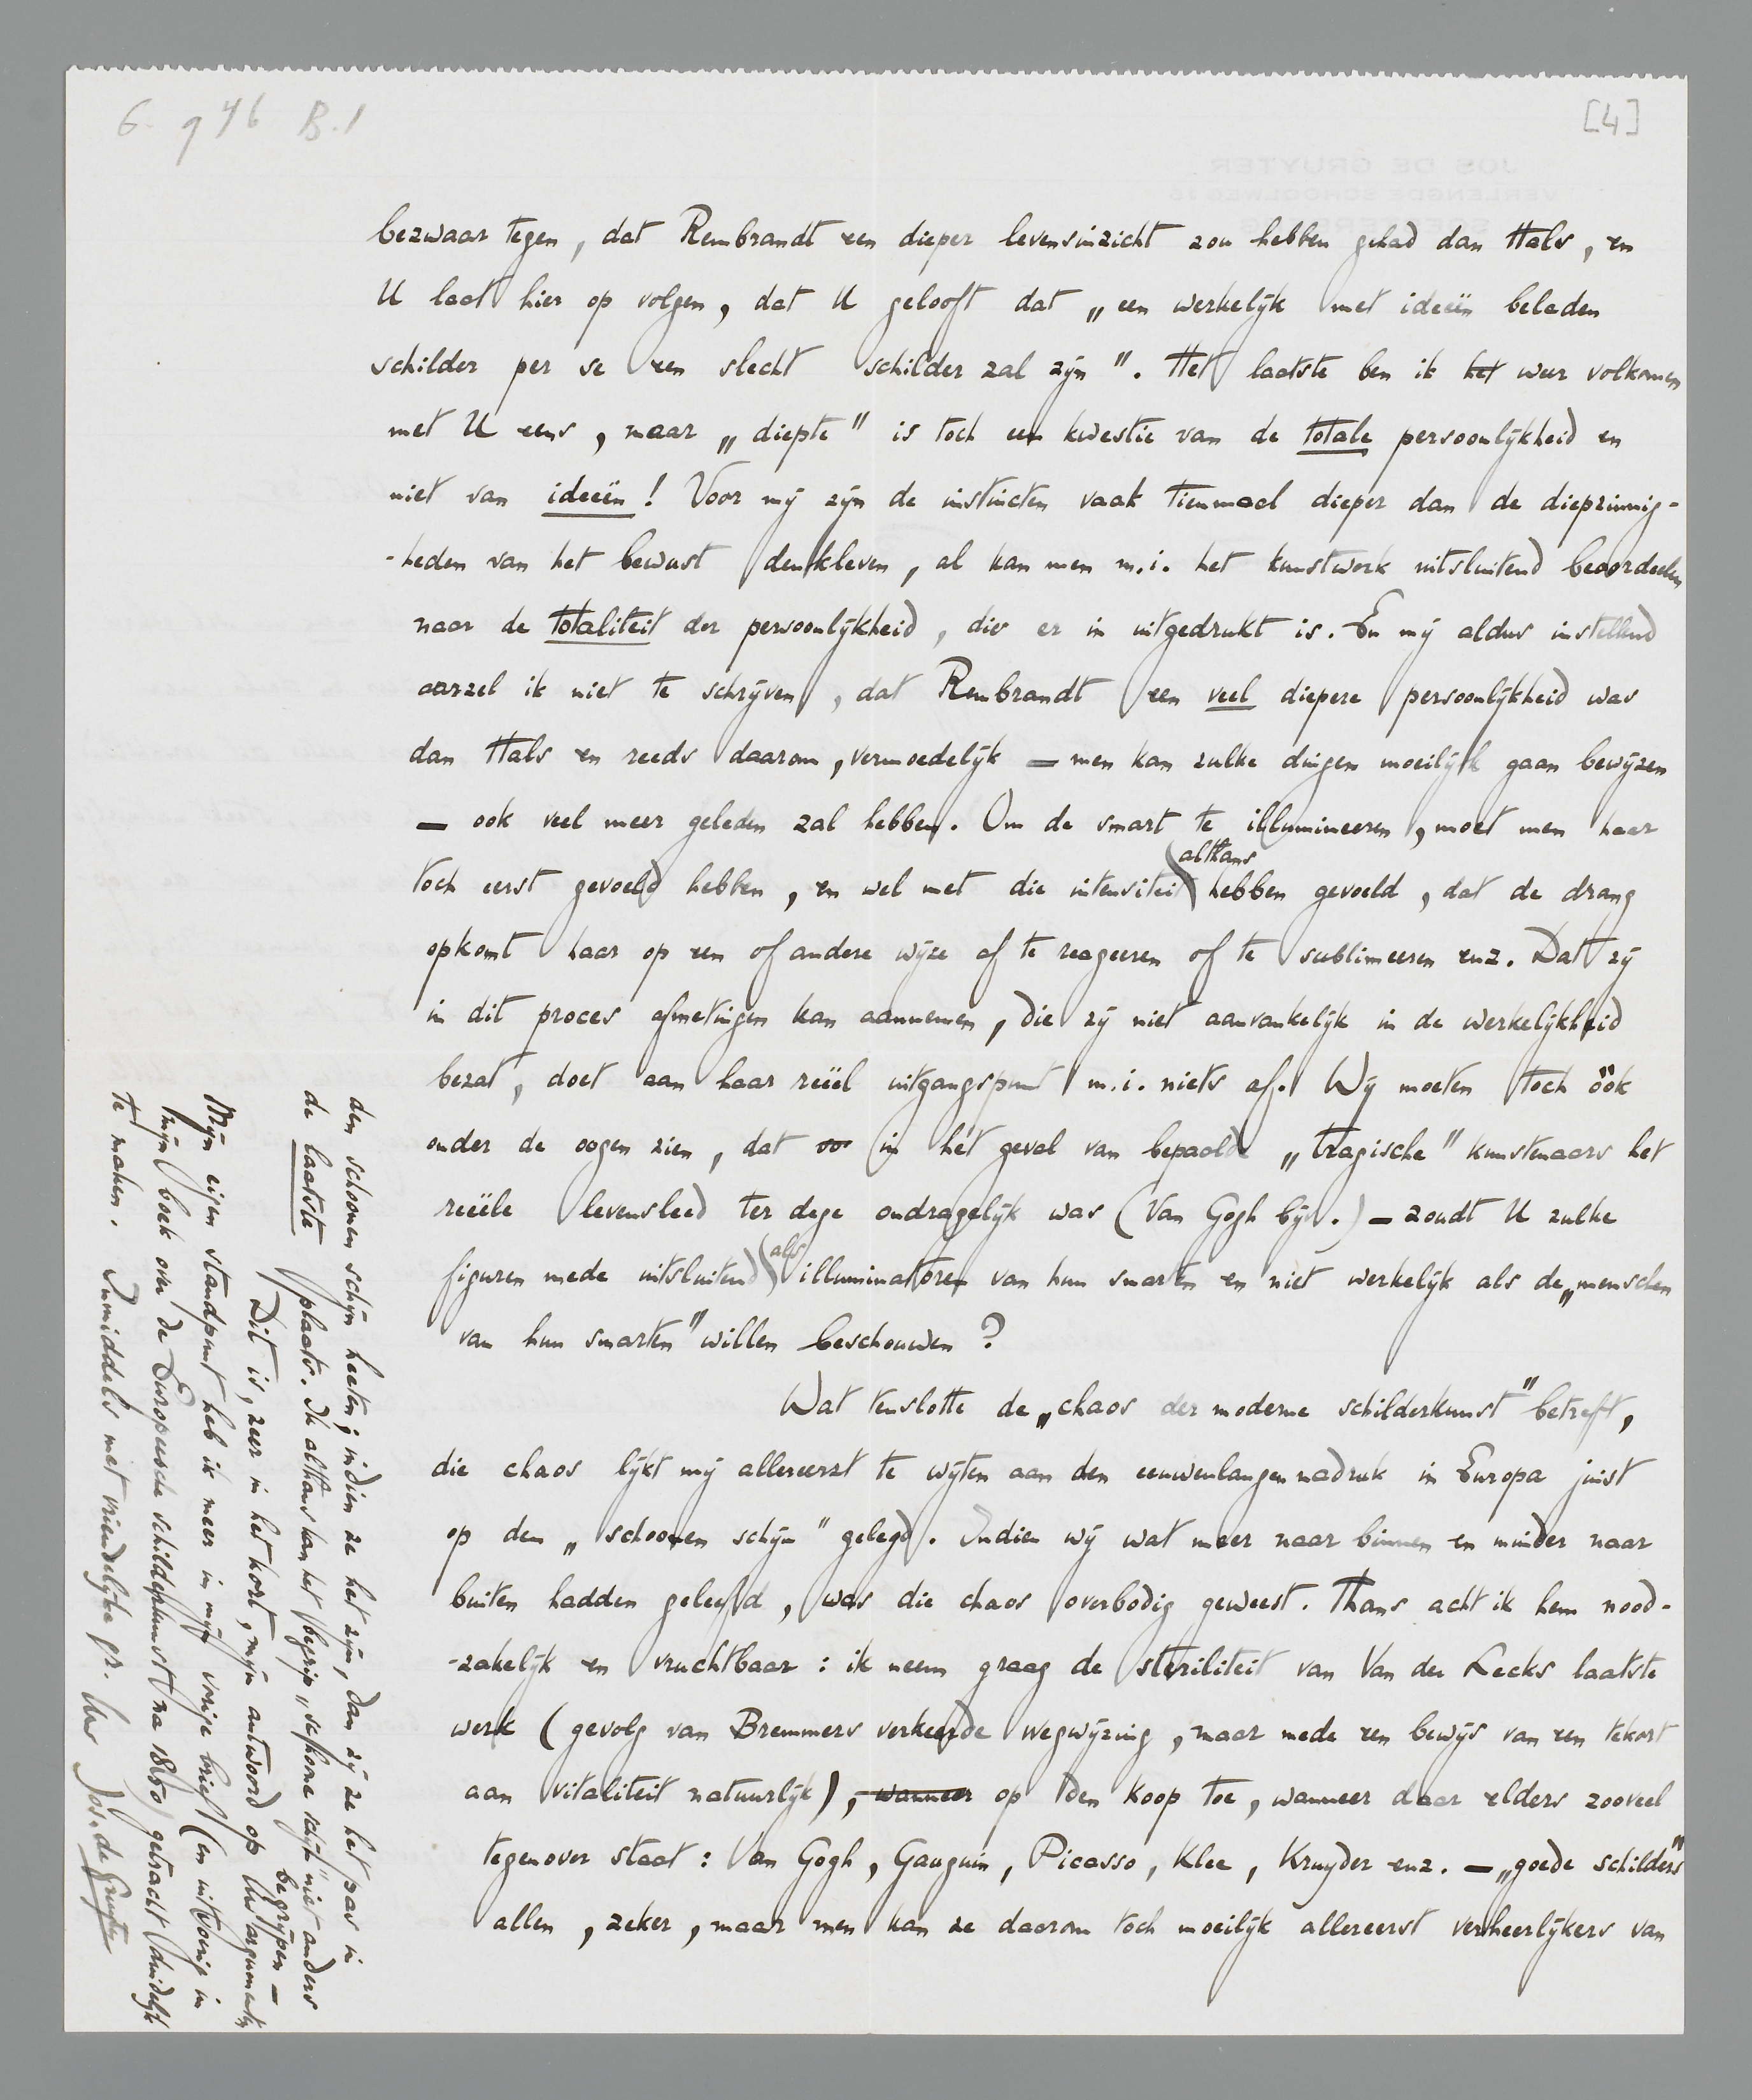 G. 946 B.1
[4]
bezwaar tegen, dat Rembrandt een dieper levensinzicht zou hebben gehad dan Hals, en
U laat hier op volgen, dat U gelooft dat „een werkelijk met ideeën beladen
schilder per se een slecht schilder zal zijn". Het laatste ben ik het weer volkomen
met U eens, maar „diepte" is toch een kwestie van de totale persoonlijkheid en
niet van ideeën! Voor mij zijn de instincten vaak tienmaal dieper dan de diepzinnig-
-heden van het bewust denkleven, al kan men m.i. het kunstwerk uitsluitend beoordeelen
naar de totaliteit der persoonlijkheid, die er in uitgedrukt is. En mij aldus instellend
aarzel ik niet te schrijven, dat Rembrandt een veel diepere persoonlijkheid was
dan Hals en reeds daarom, vermoedelijk — men kan zulke dingen moeilijk gaan bewijzen
— ook veel meer geleden zal hebben. Om de smart te illumineeren, moet men haar
toch eerst gevoeld hebben, en wel met die intensiteit althans hebben gevoeld, dat de drang
opkomt haar op een of andere wijze af te reageeren of te sublimeeren enz. Dat zij
in dit proces afmetingen kan aannemen, die zij niet aanvankelijk in de werkelijkheid
bezat, doet aan haar reëel uitgangspunt m.i. niets af. Wij moeten toch óók
onder de oogen zien, dat in hét geval van bepaalde „tragische" kunstenaars het
reëele levensleed ter dege ondragelijk was (Van Gogh bijv.) — zoudt U zulke
figuren mede uitsluitend als illuminatoren van hun smarten en niet werkelijk als de „menschen
van hun smarten" willen beschouwen?
Wat tenslotte de „chaos der moderne schilderkunst" betreft,
die chaos lijkt mij allereerst te wijten aan den eeuwenlangen nadruk in Europa juist
op den „schoonen schijn" gelegd. Indien wij wat meer naar binnen en minder naar
buiten hadden geleefd, was die chaos overbodig geweest. Thans acht ik hem nood-
-zakelijk en vruchtbaar: ik neem graag de steriliteit van Van der Lecks laatste
werk (gevolg van Bremmers verkeerde wegwijzing, maar mede een bewijs van een tekort
aan vitaliteit natuurlijk), wanneer op den koop toe, wanneer daar elders zooveel
tegenover staat: Van Gogh, Gauguin, Picasso, Klee, Kruyder enz. — „goede schilders"
allen, zeker, maar men kan ze daarom toch moeilijk allereerst verheerlijkers van
den schoonen schijn heeten; indien ze het zijn, dan zijn ze het pas in
de laatste plaats. Ik althans kan het begrip „schoone schijn" niet anders
begrijpen —
Dit is, zeer in het kort, mijn antwoord op Uw argumenten
Mijn eigen standpunt heb ik meer in mijn vorige brief (en uitvoerig in
mijn boek over de Europeesche schilderkunst na 1850) getracht duidelijk
te maken. Inmiddels met vriendelijke gr. Uw Jos. de Gruyter